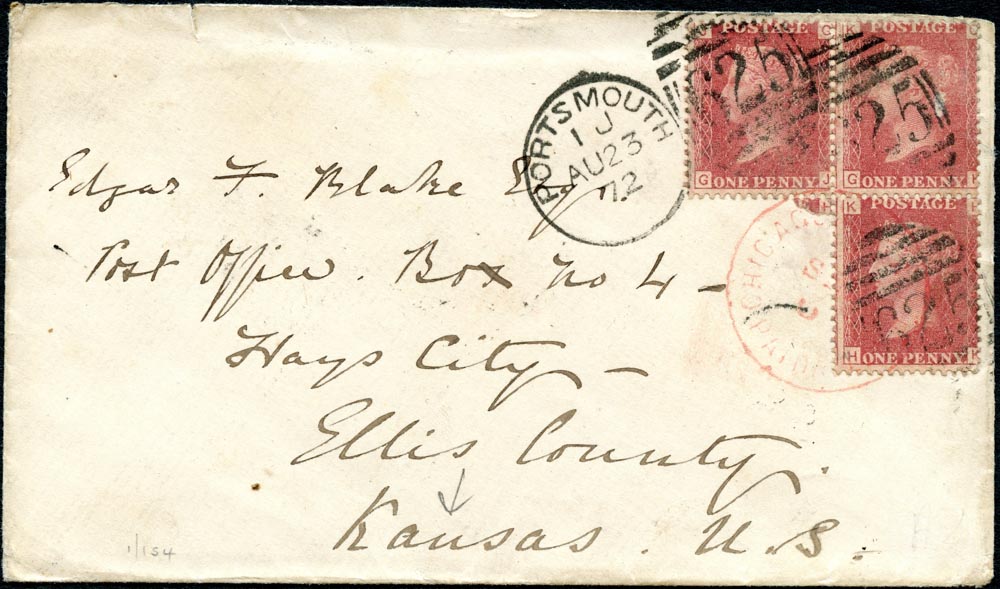 G POSTAGE C
K POSTAGE C
625
625
G ONE PENNY J
G ONE PENNY
K POSTAGE
H ONE PENNY K
PORTSMOUTH
1 J
AU 23
72
CHICAGO
PAID
Edgar F. Blake Esq
Post Office. Box No 4 -
Hays City -
Ellis County.
Kansas. U.S.
1/154